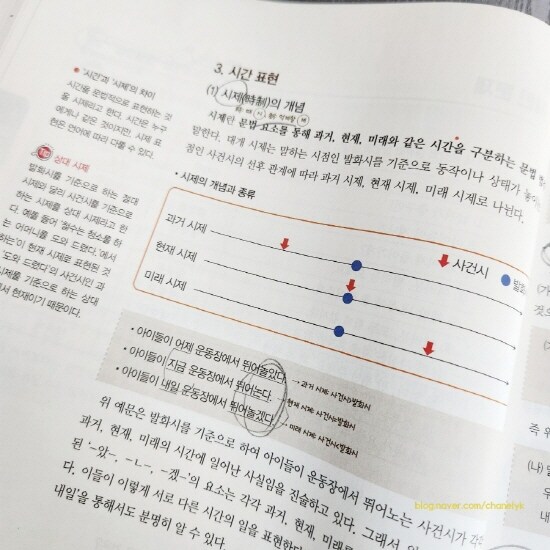 3. 시간 표현
(1) 시제(時制)의 개념
시제란 문법 요소를 통해 과거, 현재, 미래와 같은 시간을 구분하는 문법
말한다. 대개 시제는 말하는 시점인 발화시를 기준으로 동작이나 상태가
점인 사건시의 선후 관계에 따라 과거 시제, 현재 시제, 미래 시제로 나뉜다.
• '시간'과 '시제'의 차이
시간을 문법적으로 표현하는 것
을 시제라고 한다. 시간은 누구
에게나 같은 것이지만, 시제 표
현은 언어에 따라 다를 수 있다.
상대 시제
발화시를 기준으로 하는 절대
시제와 달리 사건시를 기준으로
하는 시제를 상대 시제라고 한
다. 예를 들어 '철수는 청소를 하
는 어머니를 도와 드렸다.'에서
하는'이 현재 시제로 표현된 것
'도와 드렸다'의 사건시인 과
시제를 기준으로 하는 상대
서 현재이기 때문이다.
• 시제의 개념과 종류
과거 시제
현재 시제
미래 시제
사건시
• 아이들이 어제 운동장에서 뛰어놀았다.
→ 과거 시제: 사건시>발화시
• 아이들이 지금 운동장에서 뛰어논다.
현재 시제: 사건시=발화시
• 아이들이 내일 운동장에서 뛰어놀겠다.
→ 미래 시제: 사건시<발화시
위 예문은 발화시를 기준으로 하여 아이들이 운동장에서 뛰어노는 사건시가 각각
과거, 현재, 미래의 시간에 일어난 사실임을 진술하고 있다. 그래서
된 '-았-, -ㄴ-, -겠-'의 요소는 각각 과거, 현재, 미래
다. 이들이 이렇게 서로 다른 시간의 일을 표현한다
내일'을 통해서도 분명히 알 수 있다.
즉 위
(나)
내
blog.naver.com/chanelyk